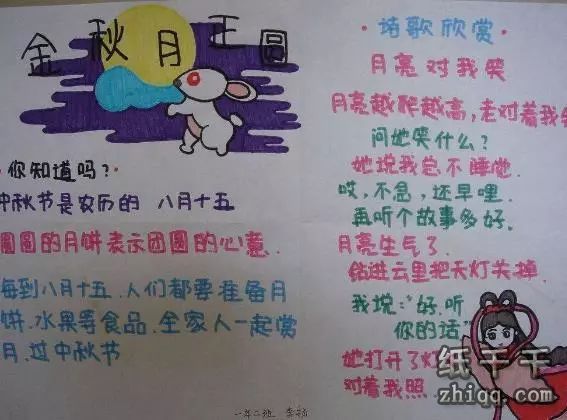 金秋月正圆
·你知道吗?·
中秋节是农历的 八月十五
圆圆的月饼表示团圆的心意.
每到八月十五.人们都要准备月
饼.水果等食品.全家人一起赏
月.过中秋节
·诗歌欣赏·
月亮对我笑
月亮越爬越高,老对着我
问她笑什么?
她说我总不睡觉.
哎,不急,还早哩.
再听个故事多好.
月亮生气了
钻进云里把天灯关掉.
我说:"好.听
你的话
她打开了灯
对着我照
一年二班
纸千千
zhiqq.com